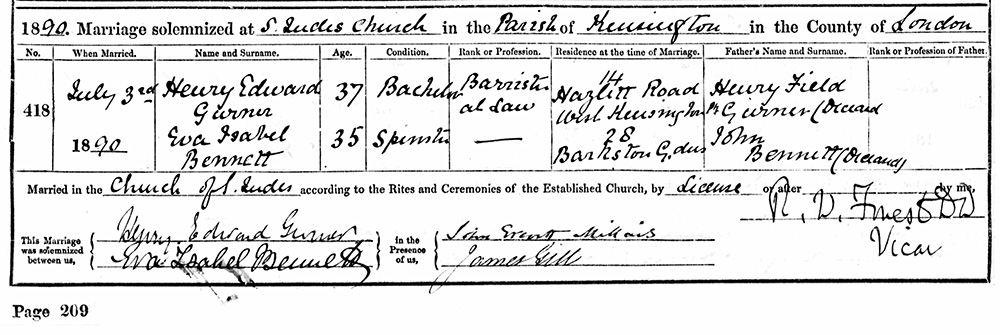 1890. Marriage solemnized at S. Judes Church in the Parish of Kensington in the County of London
No. When Married. Name and Surname. Age. Condition. Rank or Profession. Residence at the time of Marriage. Father's Name and Surname. Rank or Profession of Father.
418 July 3rd 1890 Henry Edward Gurner 37 Bachelor Barrister at Law 14 Hazlitt Road West Kensington Henry Field Gurner (Deceased
Eva Isabel Bennett 35 Spinster — 28 Barkston Gdns John Bennett (Deceased)
Married in the Church of S. Judes according to the Rites and Ceremonies of the Established Church, by License or after by me,
This Marriage was solemnized between us, Henry Edward Gurner Eva Isabel Bennett In the Presence of us, John Everett Millais James Gill R. W. Forrest DD Vicar
Page 209